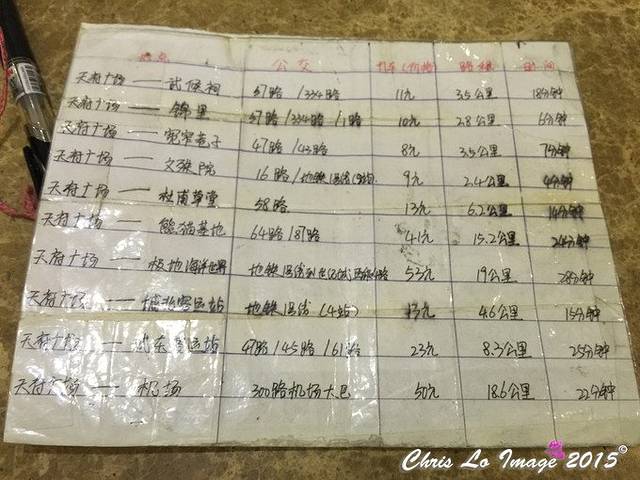 地点 公交 打车(价格) 路程 时间
天府广场 —— 武侯祠 57路 / 334路 11元 3.5公里 18分钟
天府广场 —— 锦里 57路 / 334路 / 1路 10元 2.8公里 6分钟
天府广场 —— 宽窄巷子 47路 / 43路 8元 3.5公里 7分钟
天府广场 —— 文殊院 16路 / 地铁1号线 9元 2.4公里 分钟
天府广场 —— 杜甫草堂 58路 13元 6.2公里 14分钟
天府广场 —— 熊猫基地 64路 / 87路 41元 15.2公里 24分钟
天府广场 —— 极地海洋世界 地铁1号线到 53元 19公里 28分钟
天府广场 —— 城北客运站 地铁1号线 (4站) 13元 4.6公里 15分钟
天府广场 —— 客运站 47路 / 45路 / 61路 23元 8.3公里 25分钟
天府广场 —— 机场 300路机场大巴 50元 18.6公里 22分钟
Chris Lo Image 2015©